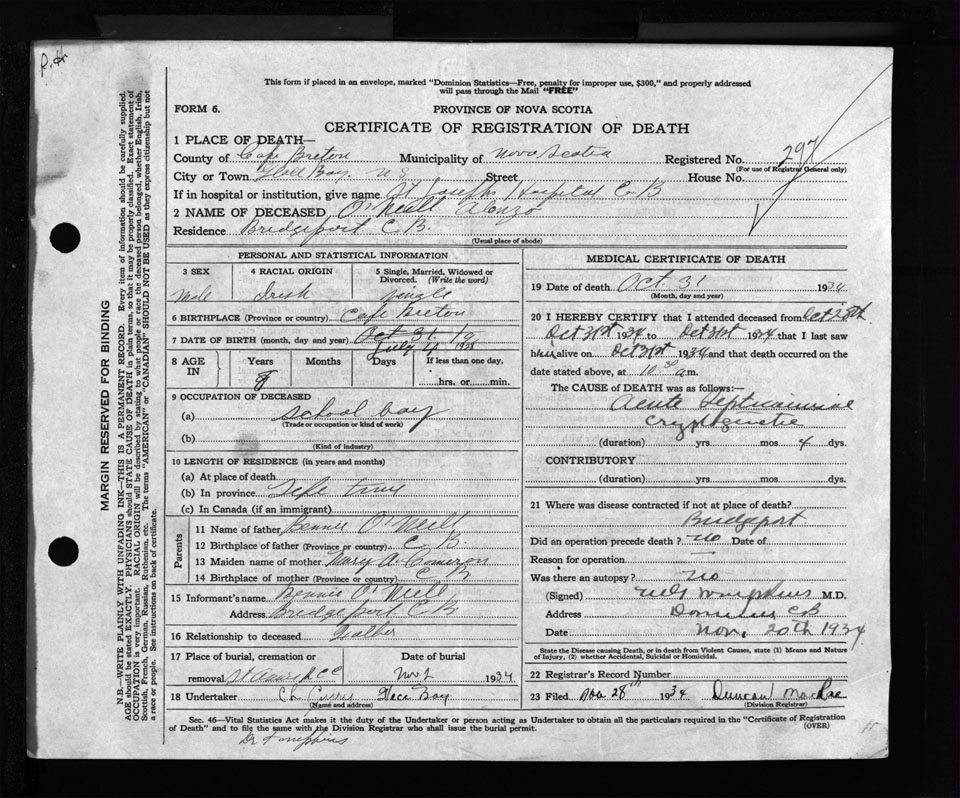 P.H
This form if placed in an envelope, marked "Dominion Statistics—Free, penalty for improper use, $300," and properly addressed
will pass through the Mail "FREE"
FORM 6.
PROVINCE OF NOVA SCOTIA
CERTIFICATE OF REGISTRATION OF DEATH
1 PLACE OF DEATH—
County of Cape Breton Municipality of Nova Scotia Registered No. 297
(For use of Registrar General only)
City or Town Glace Bay. N S Street House No.
If in hospital or institution, give name St Josephs Hospital C-B
2 NAME OF DECEASED O'Neill Alonzo
Residence Bridgeport C B.
(Usual place of abode)
PERSONAL AND STATISTICAL INFORMATION
3 SEX 4 RACIAL ORIGIN 5 Single, Married, Widowed or
Divorced. (Write the word)
Male Irish single
6 BIRTHPLACE (Province or country) Cape Breton
7 DATE OF BIRTH (month, day and year) Oct 31
July 4
8 AGE IN Years Months Days If less than one day,
8 hrs. or min.
9 OCCUPATION OF DECEASED
(a) School boy
(Trade or occupation or kind of work)
(b)
(Kind of industry)
10 LENGTH OF RESIDENCE (in years and months)
(a) At place of death
(b) In province Life time
(c) In Canada (if an immigrant)
Parents
11 Name of father Bennie O'Neill
12 Birthplace of father (Province or country) C. B.
13 Maiden name of mother Mary A. Cameron
14 Birthplace of mother (Province or country) C B
15 Informant's name Bennie O'Neill
Address Bridgeport C B
16 Relationship to deceased Father
17 Place of burial, cremation or Date of burial
removal Nov 2 1934
18 Undertaker Curry Glace Bay
(Name and address)
MEDICAL CERTIFICATE OF DEATH
19 Date of death Oct 31 1934
(Month, day and year)
20 I HEREBY CERTIFY that I attended deceased from Oct 28th
Oct 31st 1934 to Oct 31st 1934 that I last saw
him alive on Oct 31st 1934 and that death occurred on the
date stated above, at 10 30 a m.
The CAUSE OF DEATH was as follows:—
Acute Septicaemia
Cryptogenetic
(duration) yrs. mos. 4 dys.
CONTRIBUTORY
(duration) yrs. mos. dys.
21 Where was disease contracted if not at place of death?
Bridgeport
Did an operation precede death? no Date of
Reason for operation
Was there an autopsy? no
(Signed) Tompkins M.D.
Address Dominion CB
Date Nov. 20th 1934
State the Disease causing Death, or in death from Violent Causes, state (1) Means and Nature
of Injury, (2) whether Accidental, Suicidal or Homicidal.
22 Registrar's Record Number
23 Filed Nov 28th 1934 Duncan MacRae
(Division Registrar)
Sec. 46—Vital Statistics Act makes it the duty of the Undertaker or person acting as Undertaker to obtain all the particulars required in the "Certificate of Registration
of Death" and to file the same with the Division Registrar who shall issue the burial permit.
(OVER)
Dr Tompkins
MARGIN RESERVED FOR BINDING
N.B.—WRITE PLAINLY WITH UNFADING INK—THIS IS A PERMANENT RECORD. Every item of information should be carefully supplied.
AGE should be stated EXACTLY. PHYSICIANS should STATE CAUSE OF DEATH in plain terms, so that it may be properly classified. Exact statement of
OCCUPATION is very important. RACIAL ORIGIN will be described by stating to what people or race the deceased person belonged, whether English, Irish,
Scottish, French, German, Russian, Ruthenian, etc. The terms "AMERICAN" or "CANADIAN" SHOULD NOT BE USED as they express citizenship but not
a race or people. See instructions on back of certificate.